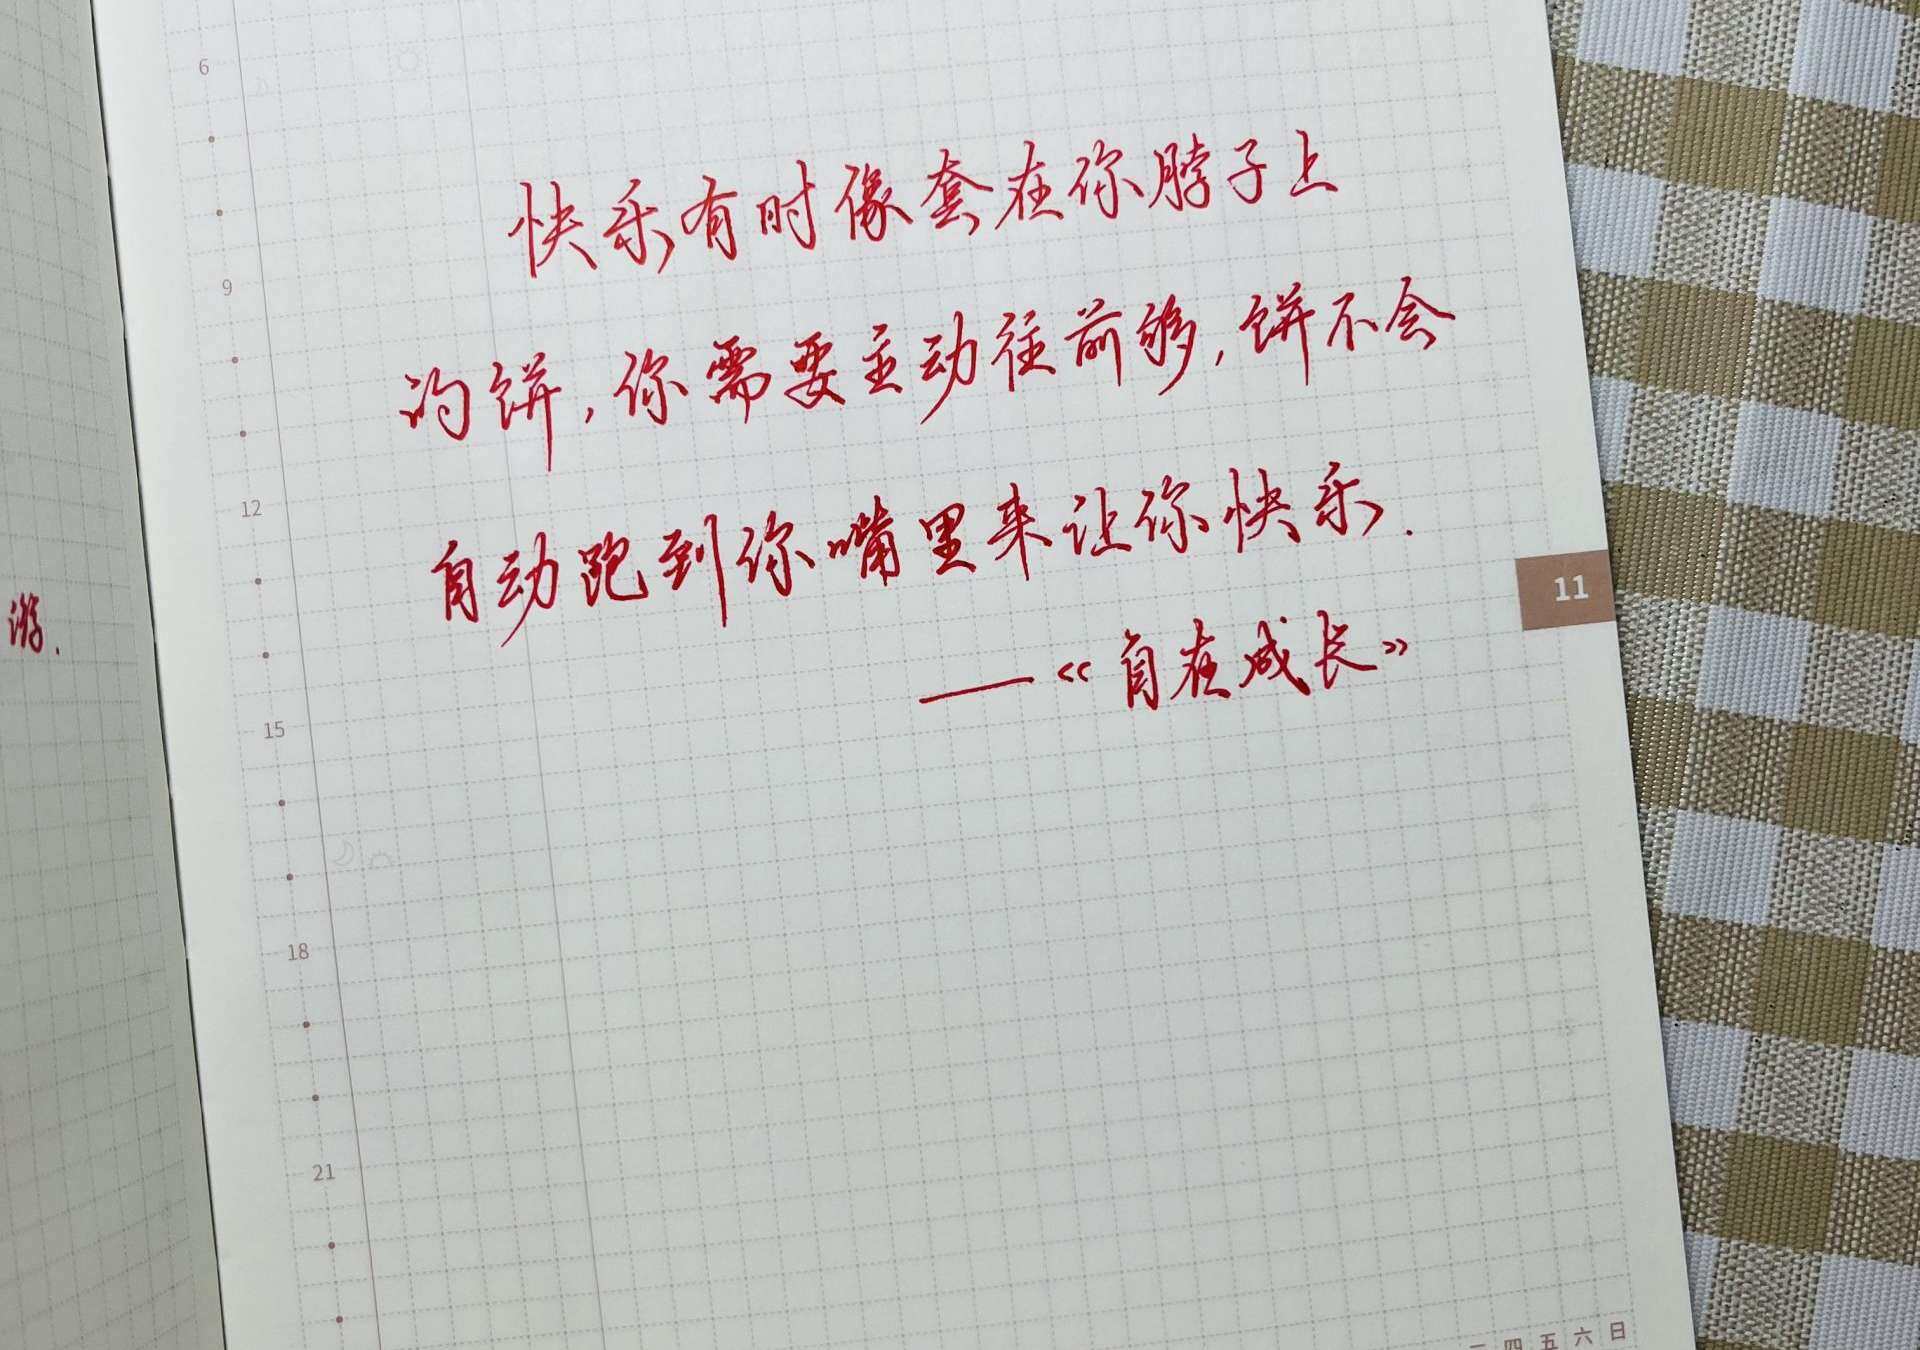 快乐有时像套在你脖子上
的饼,你需要主动往前够,饼不会
自动跑到你嘴里来让你快乐.
——《自在成长》
游.
6
9
12
15
18
21
11
四 五 六 日